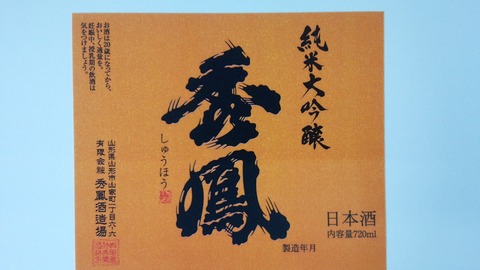 純米大吟醸
秀鳳
しゅうほう
日本酒
内容量720ml
製造年月
お酒は20歳になってから。
おいしく適量を。
妊娠中、授乳期の飲酒は
気をつけましょう。
山形県山形市山家町一丁目六・六
有限会社 秀鳳酒造場